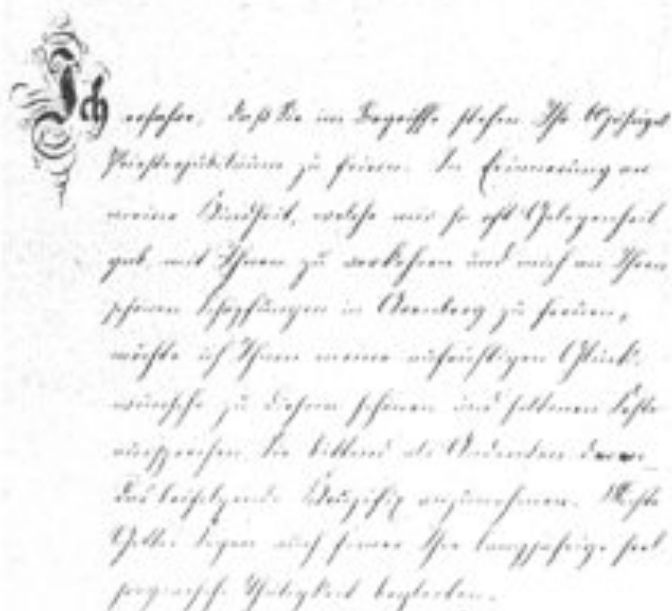 Ich erfahre, daß Sie im Begriffe stehen Ihr 60jähriges
Priesterjubiläum zu feiern. In Erinnerung an
meine Kindheit, welche mir so oft Gelegenheit
gab, mit Ihnen zu verkehren und mich an Ihren
schönen Schöpfungen in Arenberg zu freuen,
möchte ich Ihnen meine aufrichtigen Glück-
wünsche zu diesem schönen und seltenen Feste
aussprechen, Sie bittend als Andenken daran
das beifolgende Kruzifix anzunehmen. Möchte
Gottes Segen auch ferner Ihre langjährige seel
sorgerische Thätigkeit begleiten.